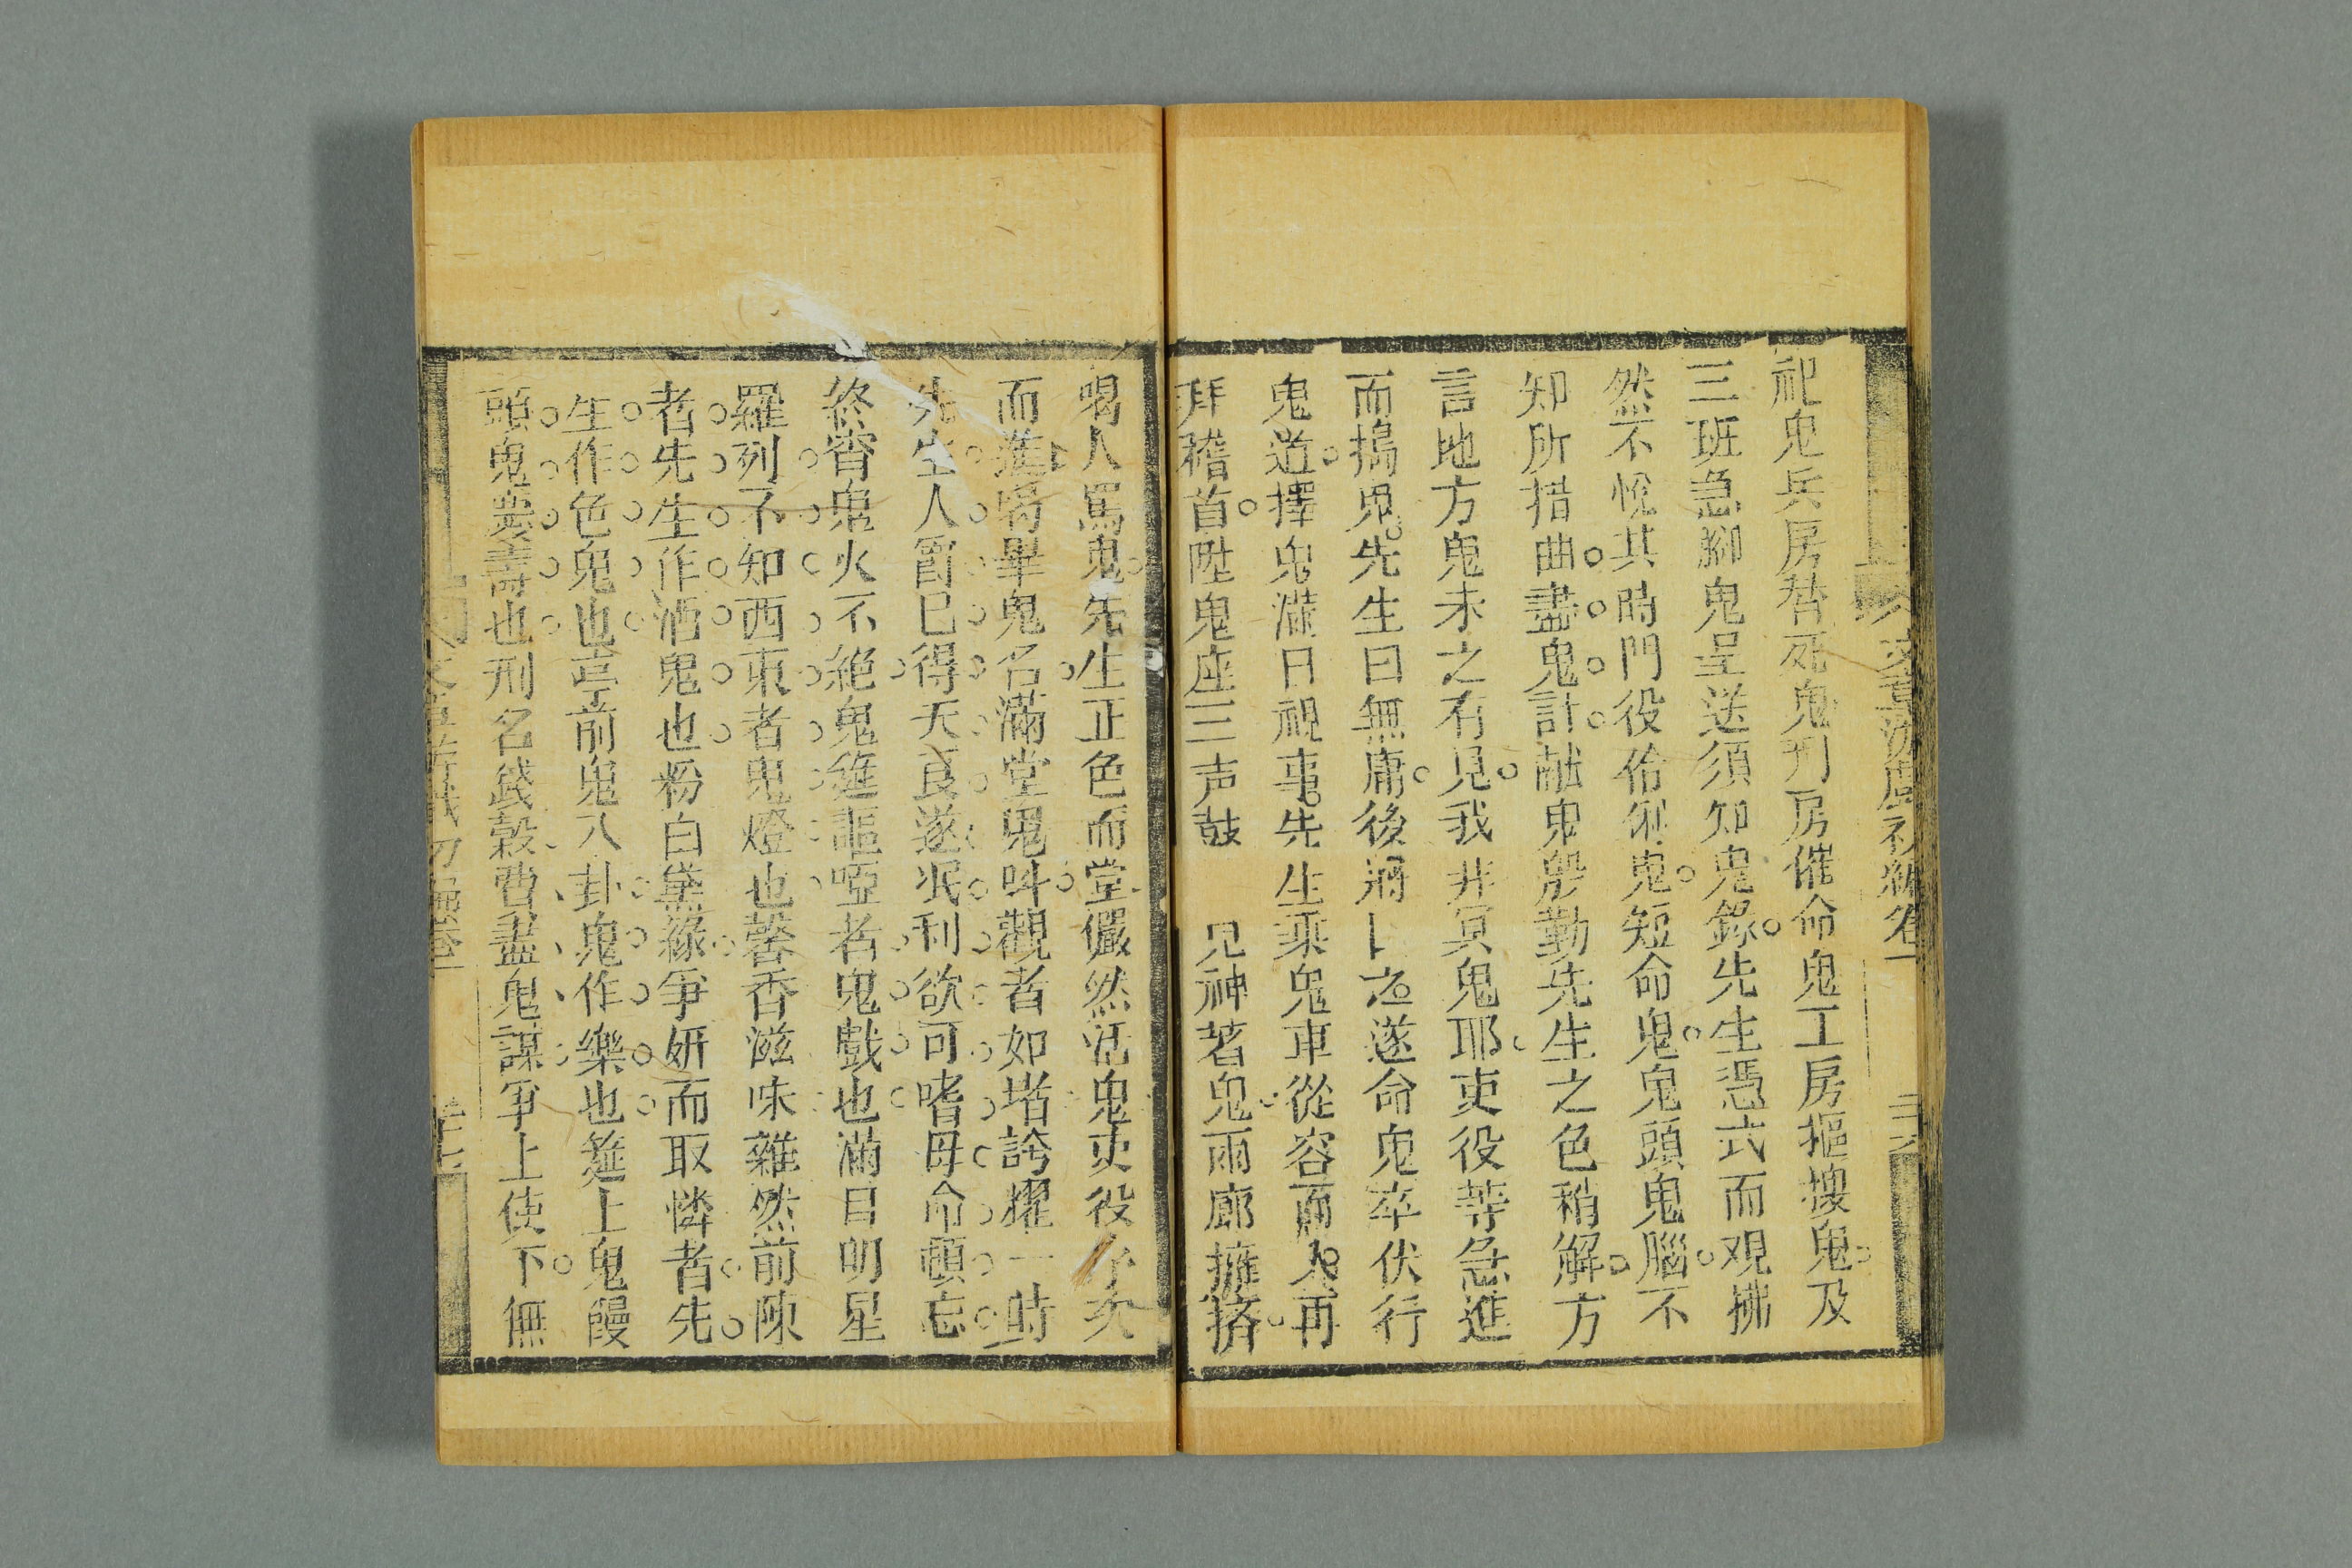 祀鬼兵房替死鬼刑房催命鬼工房摳搜鬼及
三班急脚鬼呈送須知鬼錄先生憑式而观拂
然不悅其時門役伶俐鬼短命鬼鬼頭鬼腦不
知所措曲盡鬼計献鬼殷勤先生之色稍解方
言地方鬼未之有見我井冥鬼耶吏役等急進
而搗鬼先生曰無庸後遂命鬼卒伏行
鬼道擇鬼滿日視事先生乘鬼車從容而入再
拜稽首陞鬼座三声鼓 見神著鬼兩廊擁擠
喝人罵鬼先生正色而堂儼然活鬼吏役次
而進謁畢鬼名滿堂鬼呌觀者如堵誇耀一時
先生人爵已得天良遂泯利欲可嗜毋命頓忘
終宵鬼火不絶鬼筵謳啞者鬼戲也滿目明星
羅列不知西東者鬼燈也馨香滋味雜然前陳
者先生作酒鬼也粉白黛綠爭妍而取憐者先
生作色鬼也亭前鬼八卦鬼作樂也筵上鬼饅
頭鬼慶壽也刑名錢穀費盡鬼謀爭上使下無